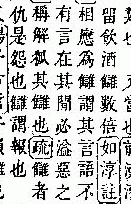 留飲酒讎數倍如淳註
相應為讎謂其言語不
有言在其間必溢惡之
稱解狐其讎也疏讎者
仇是怨也讎謂報也